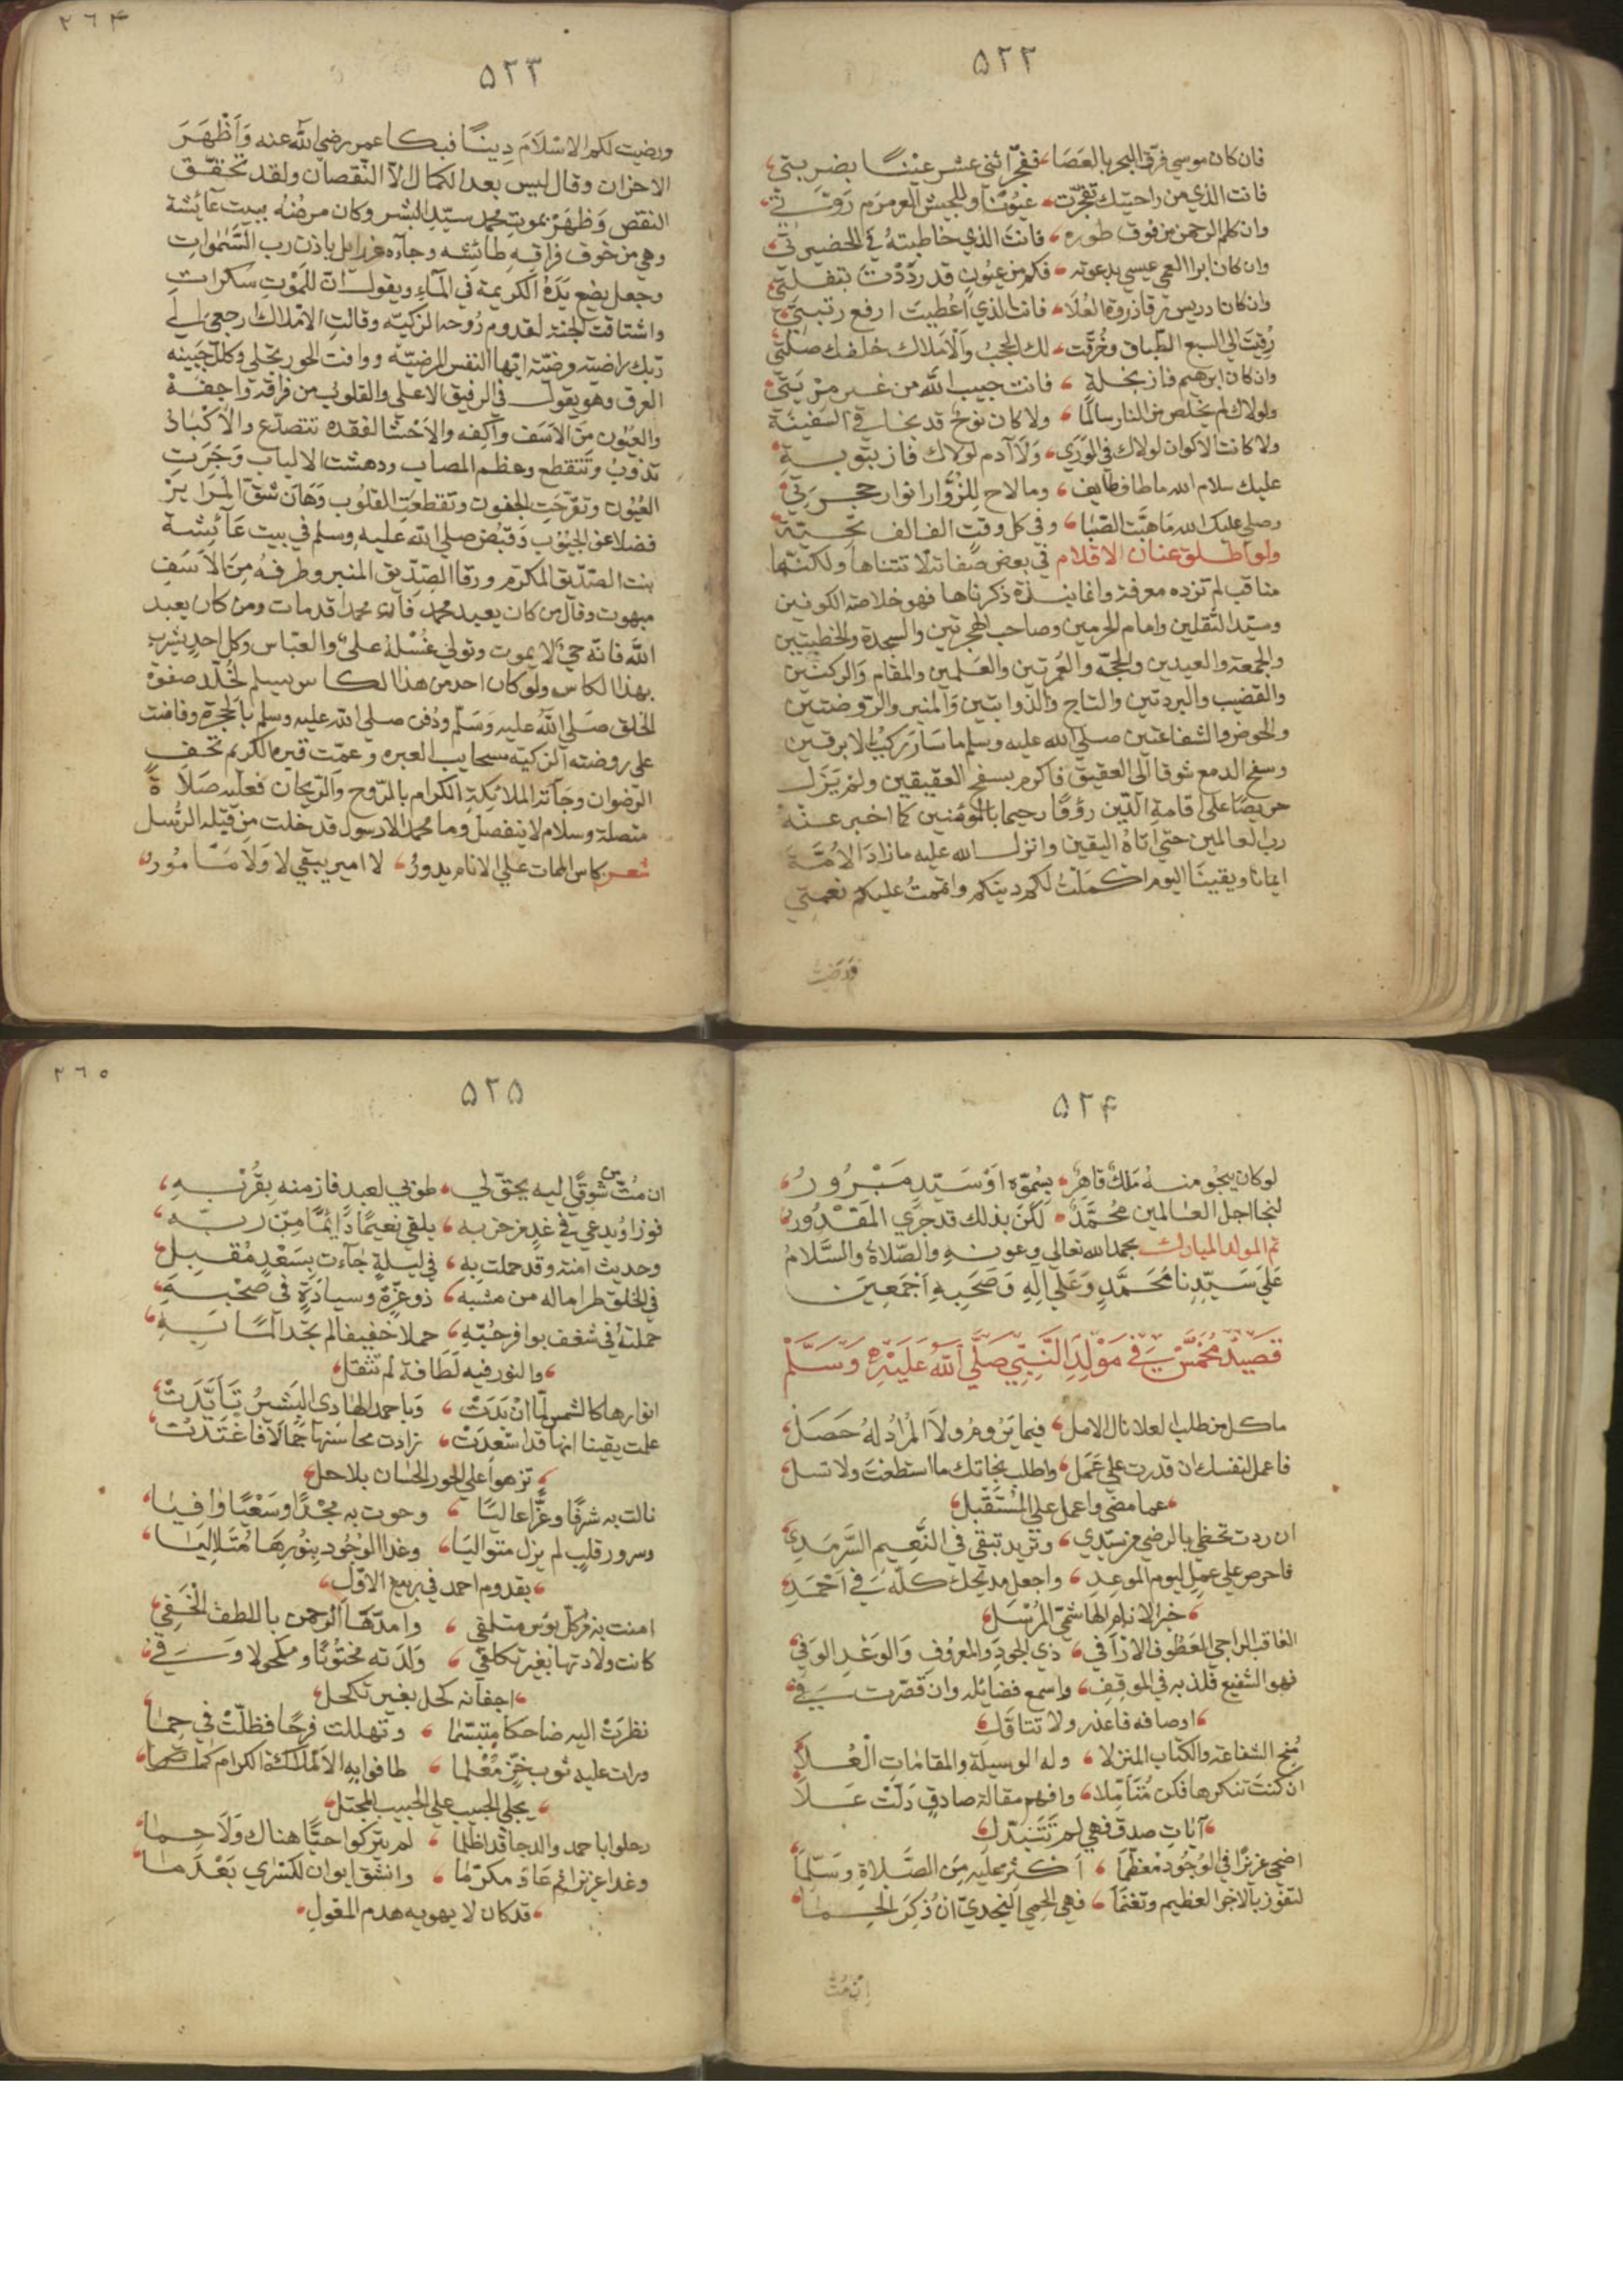 ٥٢٢
فان كان موسي فرق البحر بالعصا، ففجّر اثني عشر عينًا بضربتي،
فانت الذي من راحتيك تفجّرت، عيونًا وللجيش العرمرم روّتي،
وان كلم الرحمن من فوق طوره، فانت الذي خاطبته في الحضيرتي،
وان كان ابرا العمي عيسي بدعوته، فكم من عيون قد رددت بتفلتي
وان كان ادريس ترقا ذروة العلا، فانت الذي اعطيت ارفع رتبتي،
رُقيت الي السبع الطباق وخُرقت، لك الحجب والاملاك خلفك صلّتي
وان كان ابرهيم فاز بخلة، فانت حبيب الله من غير مريتي،
ولولاك لم يخلص من النار سالمًا، ولا كان نوح قد نجا في السفينة
ولا كانت الاكوان لولاك في الوري، ولا آدم لولاك فاز بتوبة
عليك سلام الله ما طاف طايف، وما لاح للزوار انوار حجرتي،
وصلي عليك الله ما هبّت الصّبا، وفي كل وقت الف الف تحيّة
ولو اطلق عنان الاقلام في بعض صفاته لا تتناها ولكنّها
مناقب لم تزده معرفة وانما نبذة ذكرناها فهو خلاصة الكونين
وسيّد الثقلين وامام الحرمين وصاحب الهجرتين والسجدة والخطبتين
والجمعة والعيدين والحجّة والعُمرتين والعلمين والمقام والركنين
والقضيب والبردتين والتاج والذوابتين والمنبر والروضتين
والحوض والشفاعتين صلي الله عليه وسلم ما سار ركب بالابرقين
وسفح الدمع شوقا الي العقيق فاكرم بسفح العقيقين ولم يزل
حريصًا علي اقامة الدّين رؤفًا رحيما بالمؤمنين كما اخبر عنه
رب العالمين حتي اتاه اليقين وانزل الله عليه ما زاد الامّة
ايمانا ويقينًا اليوم اكملت لكم دينكم واتممت عليكم نعمتي
ورضيت
٢٦٤
٥٢٣
ورضيت لكم الاسلام دينًا فبكا عمر رضي الله عنه وأظهر
الاحزان وقال ليس بعد الكمال الّا النّقصان ولقد تحقّق
النقص وظهر بموت محمد سيّد البشر وكان مرضُه ببيت عآئشة
وهي من خوف فراقه طائشه وجآءه عزرايل باذن رب السّموات
وجعل يضع يدهُ الكريمة في المآء ويقول ان للموت سكرات
واشتاقت الجنة لقدوم روحه الزكيّه وقالت الاملاك ارجعي الي
ربك راضية مرضيّة ايّها النفس المرضيّه ووافت الحور تجلي وكلل جبينه
العرق وهو يقول في الرفيق الاعلي والقلوب من فراقه واجفة
والعيون من الاسف واكفه والاحشا لفقده تتصدّع والاكباد
تذوب وتتقطع وعظم المصاب ودهشت الالباب وجرت
العيون وتقرّحت الجفون وتقطعت القلوب وهان شق المراير
فضلا عن الجيُوب وقبُض صلي الله عليه وسلم في بيت عآئشة
بنت الصّدّيق المكرّم ورقا الصّدّيق المنبر وطرفه من الاسف
مبهوت وقال من كان يعبد محمد فانّ محمد اقد مات ومن كان يعبد
الله فانّه حيّ لا يموت وتولي غسله علي والعبّاس وكل احد يشرب
بهذا الكاس ولو كان احد من هذا الكاس يسلم لخُلّد صفوة
الخلق صلي الله عليه وسلم ودُفن صلي الله عليه وسلم بالحجرة وفاضت
علي روضته الزكيّه سحايب العبره وعمّت قبره الكريم تحف
الرّضوان وجآته الملائكة الكرام بالرّوح والرّيحان فعليه صلاة
متصلة وسلام لا ينفصل وما محمد الا رسول قد خلت من قبله الرُّسل
شعر كاس الممات علي الانام يدور، لا امير يبقي لا ولا مأمور،
٥٢٤
لو كان ينجُو منه ملك قاهر، بسموّه او سيّد مبرور،
لنجا اجل العالمين محمّد، لكن بذلك قد جري المقدُور،
تم المولد المبارك بحمد الله تعالي وعونه والصّلاة والسّلام
علي سيّدنا محمّد وعلي اله وصحبه اجمعين
قصيدة مخمّس في مولد النّبي صلّي الله عليه وسلّم
ما كل من طلب العلا نال الامل، فيما يروم ولا المراد له حصل
فاعمل لنفسك ان قدرت علي عمل، واطلب نجاتك ما استطعت ولا تسل
، عما مضي واعمل علي المستقبل
ان ردت تحظي بالرضي من سيّدي، وتريد تبقي في النّعيم السّرمدي
فاحرص علي عمل ليوم الموعد، واجعل مديحك كلّه في احمد
، خير الانام الهاشميّ المرسل
العاقب الراجي العطوف الارأفي، ذي الجود والمعروف والوعد الوفي
فهو الشفيع فلذ به في الموقف، واسمع فضائله وان قصّرت في
، اوصافه فاعذر ولا تتاقل
مُنح الشفاعة والكتاب المنزلا، وله الوسيلة والمقامات العلا
ان كنت تنكرها فكن متأمّلا، وافهم مقالة صادق دلّت علا
، آيات صدق فهي لم تتبدّل
اضحي عزيزًا في الوجود معظّما، اكثر عليه من الصّلاة وسلّما
لتفوز بالاجر العظيم وتغنما، فهي الحمي النجديّ ان ذُكر الحما
ان مُت
٢٦٥
٥٢٥
ان مُتّ شوقًا ليه يحقّ لي، طوبي لعبد فاز منه بقُربه،
فوزا ويدعي في غد من حزبه، يلقي نعيمًا دآئمًا من ربّه،
وحديث امنة وقد حملت به، في ليلة جآءت بسعد مقبل
في الخلق طرا ما له من مشبه، ذو عزّة وسيادة في صحبه،
حملته في شغف بوافر حُبّه، حملا خفيفا لم تجد المًا به،
، والنور فيه لطافة لم تثقل
انوارها كالشمس لمّا ان بدت، وباحمد الهادي البشير تأيّدت
علمت يقينا انها قد اسعدت، زادت محاسنها جمالًا فاغتدت
، تزهوا علي الحور الحسان بلا حل
نالت به شرفًا وعزًّا عاليًا، وحوت به مجدًا وسعيًا وافيا
وسرور قلب لم يزل متواليًا، وغدا الوجود بنورها متلاليا
، بقدوم احمد في ربيع الاوّل،
امنت به من كلّ بوس متلفي، وامدّها الرحمن باللطف الخفي
كانت ولادتها بغير تكلفي، ولدته مختُونًا ومكحولا وفي
، اجفانه كحل بغير تكحل
نظرت اليه ضاحكا متبسّما، وتهللت فرحًا فظلّت في حما
ورات عليه ثوب خزّ معلما، طافوا به الاملاك الكرام
، يجلي الحبيب علي الحبيب المجتل
رحلوا باحمد والدجا قد اظلما، لم يتركوا حيًّا هناك ولا حما
وغدا عزيزا ثم عاد مكرّما، وانشق ايوان لكسري بعدما
، قد كان لا يهويه هدم المعول،